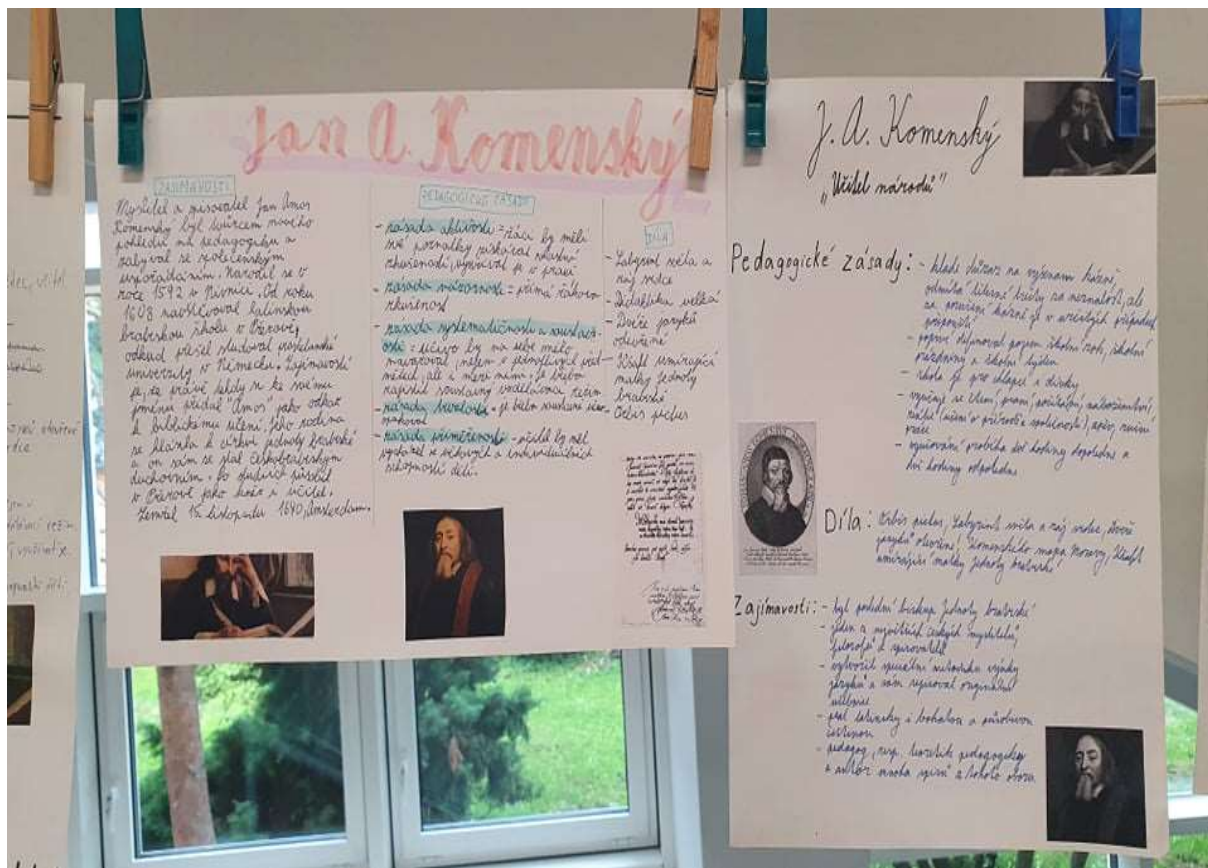 Jan A. Komenský
ZAJÍMAVOSTI
Myslitel a spisovatel Jan Amos
Komenský byl tvůrcem nového
pohledu na pedagogiku a
zabýval se společenským
uspořádáním. Narodil se v
roce 1592 v Nivnici. Od roku
1608 navštěvoval latinskou
bratrskou školu v Přerově,
odkud přešel studovat
univerzity v Německu. Zajímavostí
je, že právě tehdy si ke svému
jménu přidal "Amos" jako odkaz
k biblickému učení. Jeho rodina
se hlásila k církvi jednoty bratrské
a on sám se stal českobratrským
duchovním. Po studiích působil
v Přerově jako kněz a učitel.
Zemřel 15. listopadu 1670, Amsterdam.
PEDAGOGICKÉ ZÁSADY
- zásada aktivnosti = žáci by měli
své poznatky získávat vlastní
zkušeností, využívat je v praxi
- zásada názornosti = přímá žákova
zkušenost
- zásada systematičnosti a soustav-
osti = učivo by na sebe mělo
navazovat, nejen v jednotlivých
ale i mezi nimi. Je třeba
zajistit soustavný vzdělávací režim
- zásada trvalosti - je třeba soustavné
- zásada přiměřenosti - učitel by měl
vycházet z věkových a individuálních
schopností dětí.
DÍLA
- Labyrint světa a
ráj srdce
- Didaktika velká
- Dveře jazyků
otevřené
- Kšaft umírající
matky jednoty
bratrské
- Orbis pictus
J. A. Komenský
„Učitel národů"
Pedagogické zásady: - klade důraz na význam kázně,
odmítá tělesné tresty za neznalost, ale
za porušení kázně je v určitých případech
připouští
- poprvé definoval pojem školní rok, školní
prázdniny a školní týden
- škola je pro chlapce a dívky
- vyučuje se čtení, psaní, počítání, náboženství,
reálie (učení o přírodě a společnosti), zpěv, ruční
práce
- vyučování probíhá dvě hodiny dopoledne a
dvě hodiny odpoledne
Díla: Orbis pictus, Labyrint světa a ráj srdce, Dveře
jazyků otevřené, Komenského mapa Moravy, Kšaft
umírající matky jednoty bratrské
Zajímavosti: - byl poslední biskup Jednoty bratrské
- jeden z největších českých myslitelů,
filosofů a spisovatelů
- vytvořil speciální metodiku výuky
jazyků a sám sepisoval originální
učebnice
- psal latinsky i bohatou a působivou
češtinou
- pedagog, resp. teoretik pedagogiky
a autor mnoha spisů z tohoto oboru